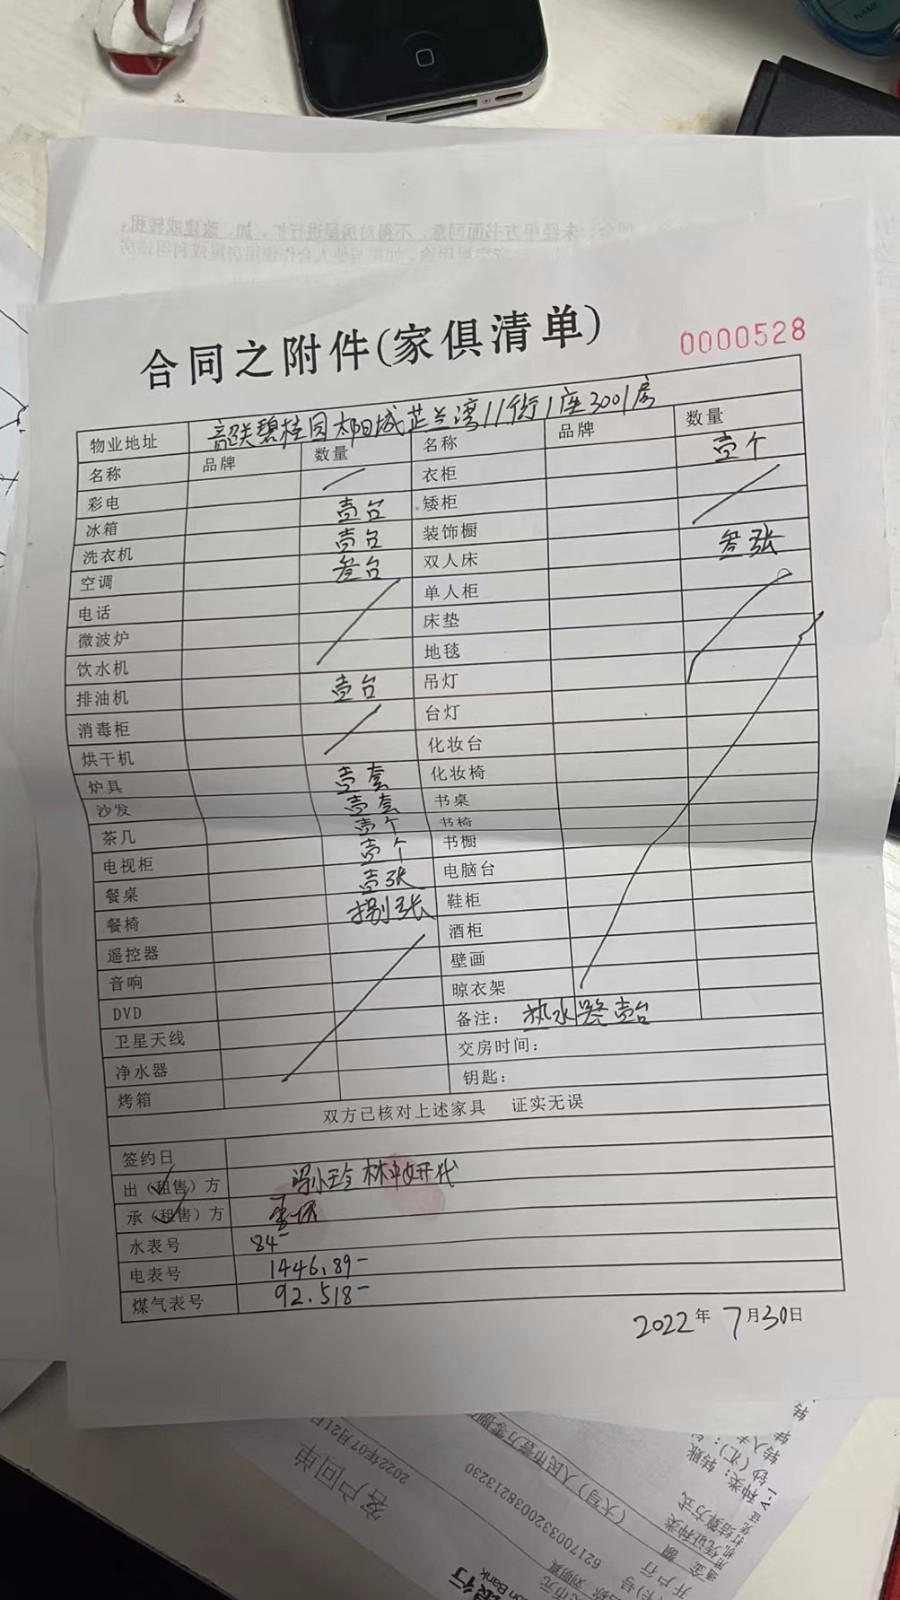 合同之附件(家俱清单)
0000528
物业地址 韶关碧桂园太阳城芷兰湾11街1座3001房
名称 品牌 数量 名称 品牌 数量
彩电 衣柜 壹个
冰箱 壹台 矮柜
洗衣机 壹台 装饰橱
空调 叁台 双人床 叁张
电话 单人柜
微波炉 床垫
饮水机 地毯
排油机 壹台 吊灯
消毒柜 台灯
烘干机 化妆台
炉具 壹套 化妆椅
沙发 壹套 书桌
茶几 壹个 书椅
电视柜 壹个 书橱
餐桌 壹张 电脑台
餐椅 捌张 鞋柜
遥控器 酒柜
音响 壁画
DVD 晾衣架
卫星天线 备注: 热水器壹台
净水器 交房时间:
烤箱 钥匙:
双方已核对上述家具 证实无误
签约日
出(租售)方
承(租售)方
水表号 84-
电表号 1446.89-
煤气表号 92.518-
2022年7月30日
客户回单
2022年07月21日
6217003320038213230